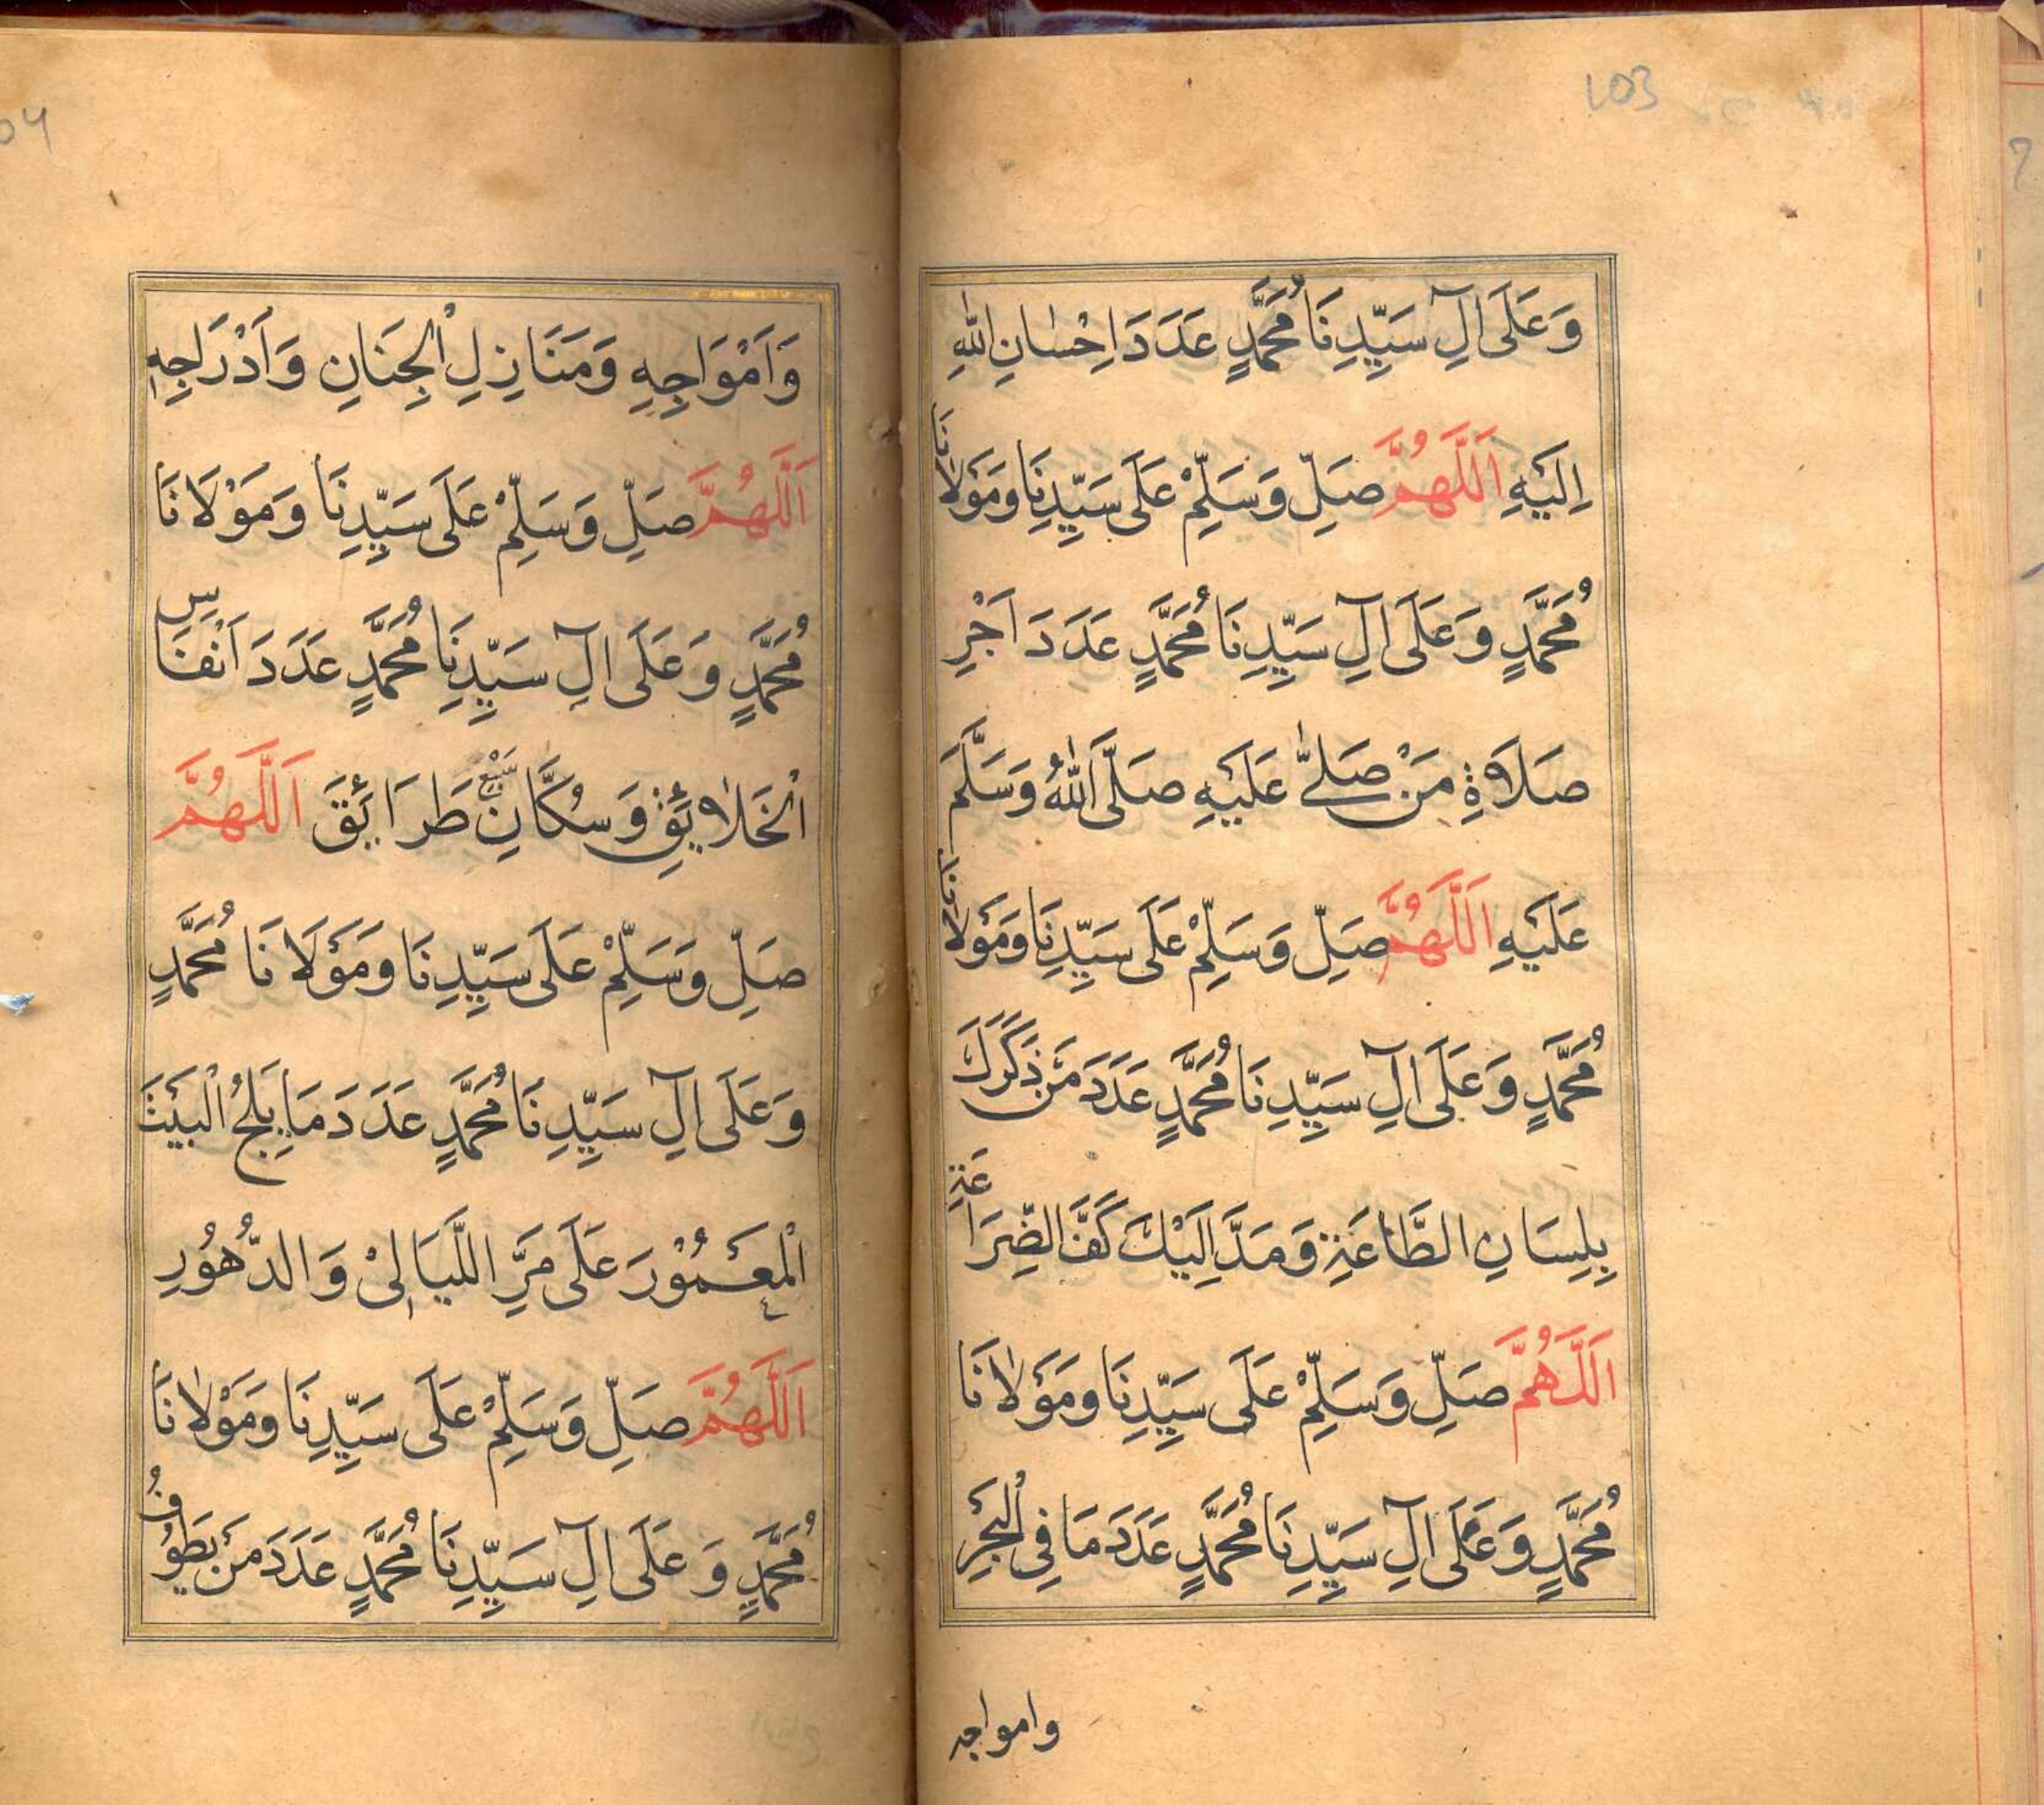 103
وَعَلَى اٰلِ سَيِّدِنَا مُحَمَّدٍ عَدَدَ اِحْسَانِ اللّٰهِ
اِلَيْهِ اَللّٰهُمَّ صَلِّ وَسَلِّمْ عَلَى سَيِّدِنَا وَمَوْلَانَا
مُحَمَّدٍ وَعَلَى اٰلِ سَيِّدِنَا مُحَمَّدٍ عَدَدَ اَجْرِ
صَلَاةِ مَنْ صَلّٰى عَلَيْهِ صَلَّى اللّٰهُ وَسَلَّمَ
عَلَيْهِ اَللّٰهُمَّ صَلِّ وَسَلِّمْ عَلَى سَيِّدِنَا وَمَوْلَانَا
مُحَمَّدٍ وَعَلَى اٰلِ سَيِّدِنَا مُحَمَّدٍ عَدَدَ مَنْ ذَكَرَكَ
بِلِسَانِ الطَّاعَةِ وَمَدَّ اِلَيْكَ كَفَّ الضِّرَاعَةِ
اَللّٰهُمَّ صَلِّ وَسَلِّمْ عَلَى سَيِّدِنَا وَمَوْلَانَا
مُحَمَّدٍ وَعَلَى اٰلِ سَيِّدِنَا مُحَمَّدٍ عَدَدَ مَا فِي الْبَحْرِ
وامواجه
04
وَاَمْوَاجِهِ وَمَنَازِلِ الْجِنَانِ وَاَدْرَاجِهِ
اَللّٰهُمَّ صَلِّ وَسَلِّمْ عَلَى سَيِّدِنَا وَمَوْلَانَا
مُحَمَّدٍ وَعَلَى اٰلِ سَيِّدِنَا مُحَمَّدٍ عَدَدَ اَنْفَاسِ
الْخَلَائِقِ وَسُكَّانِ سَبْعِ طَرَائِقَ اَللّٰهُمَّ
صَلِّ وَسَلِّمْ عَلَى سَيِّدِنَا وَمَوْلَانَا مُحَمَّدٍ
وَعَلَى اٰلِ سَيِّدِنَا مُحَمَّدٍ عَدَدَ مَا يَلِجُ الْبَيْتَ
الْمَعْمُوْرَ عَلَى مَرِّ اللَّيَالِيْ وَالدُّهُوْرِ
اَللّٰهُمَّ صَلِّ وَسَلِّمْ عَلَى سَيِّدِنَا وَمَوْلَانَا
مُحَمَّدٍ وَعَلَى اٰلِ سَيِّدِنَا مُحَمَّدٍ عَدَدَ مَنْ يَطُوْفُ